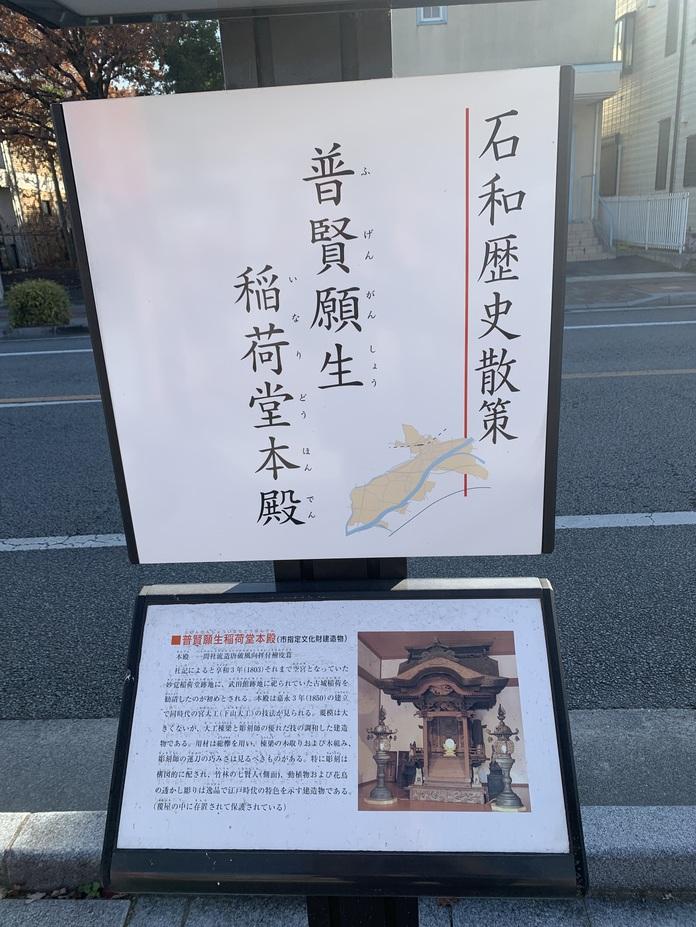 石和歴史散策
普賢願生
ふげんがんしょう
稲荷堂本殿
いなりどうほんでん
■普賢願生稲荷堂本殿(市指定文化財建造物)
本殿 一間社流造唐破風向拝付檜皮葺
社記によると享和3年(1803)それまで空宮となっていた
妙覚稲荷堂跡地に、武田館跡地に祀られていた古城稲荷を
勧請したのが初めとされる。本殿は嘉永3年(1850)の建立
で同時代の宮大工(下山大工)の技法が見られる。規模は大
きくないが、大工棟梁と彫刻師の優れた技の調和した建造
物である。用材は総欅を用い、棟梁の木取りおよび木組み、
彫刻師の運刀の巧みさは見るべきものがある。特に彫刻は
構図的に配され、竹林の七賢人(側面)、動植物および花鳥
の透かし彫りは逸品で江戸時代の特色を示す建造物である。
(覆屋の中に存置されて保護されている)